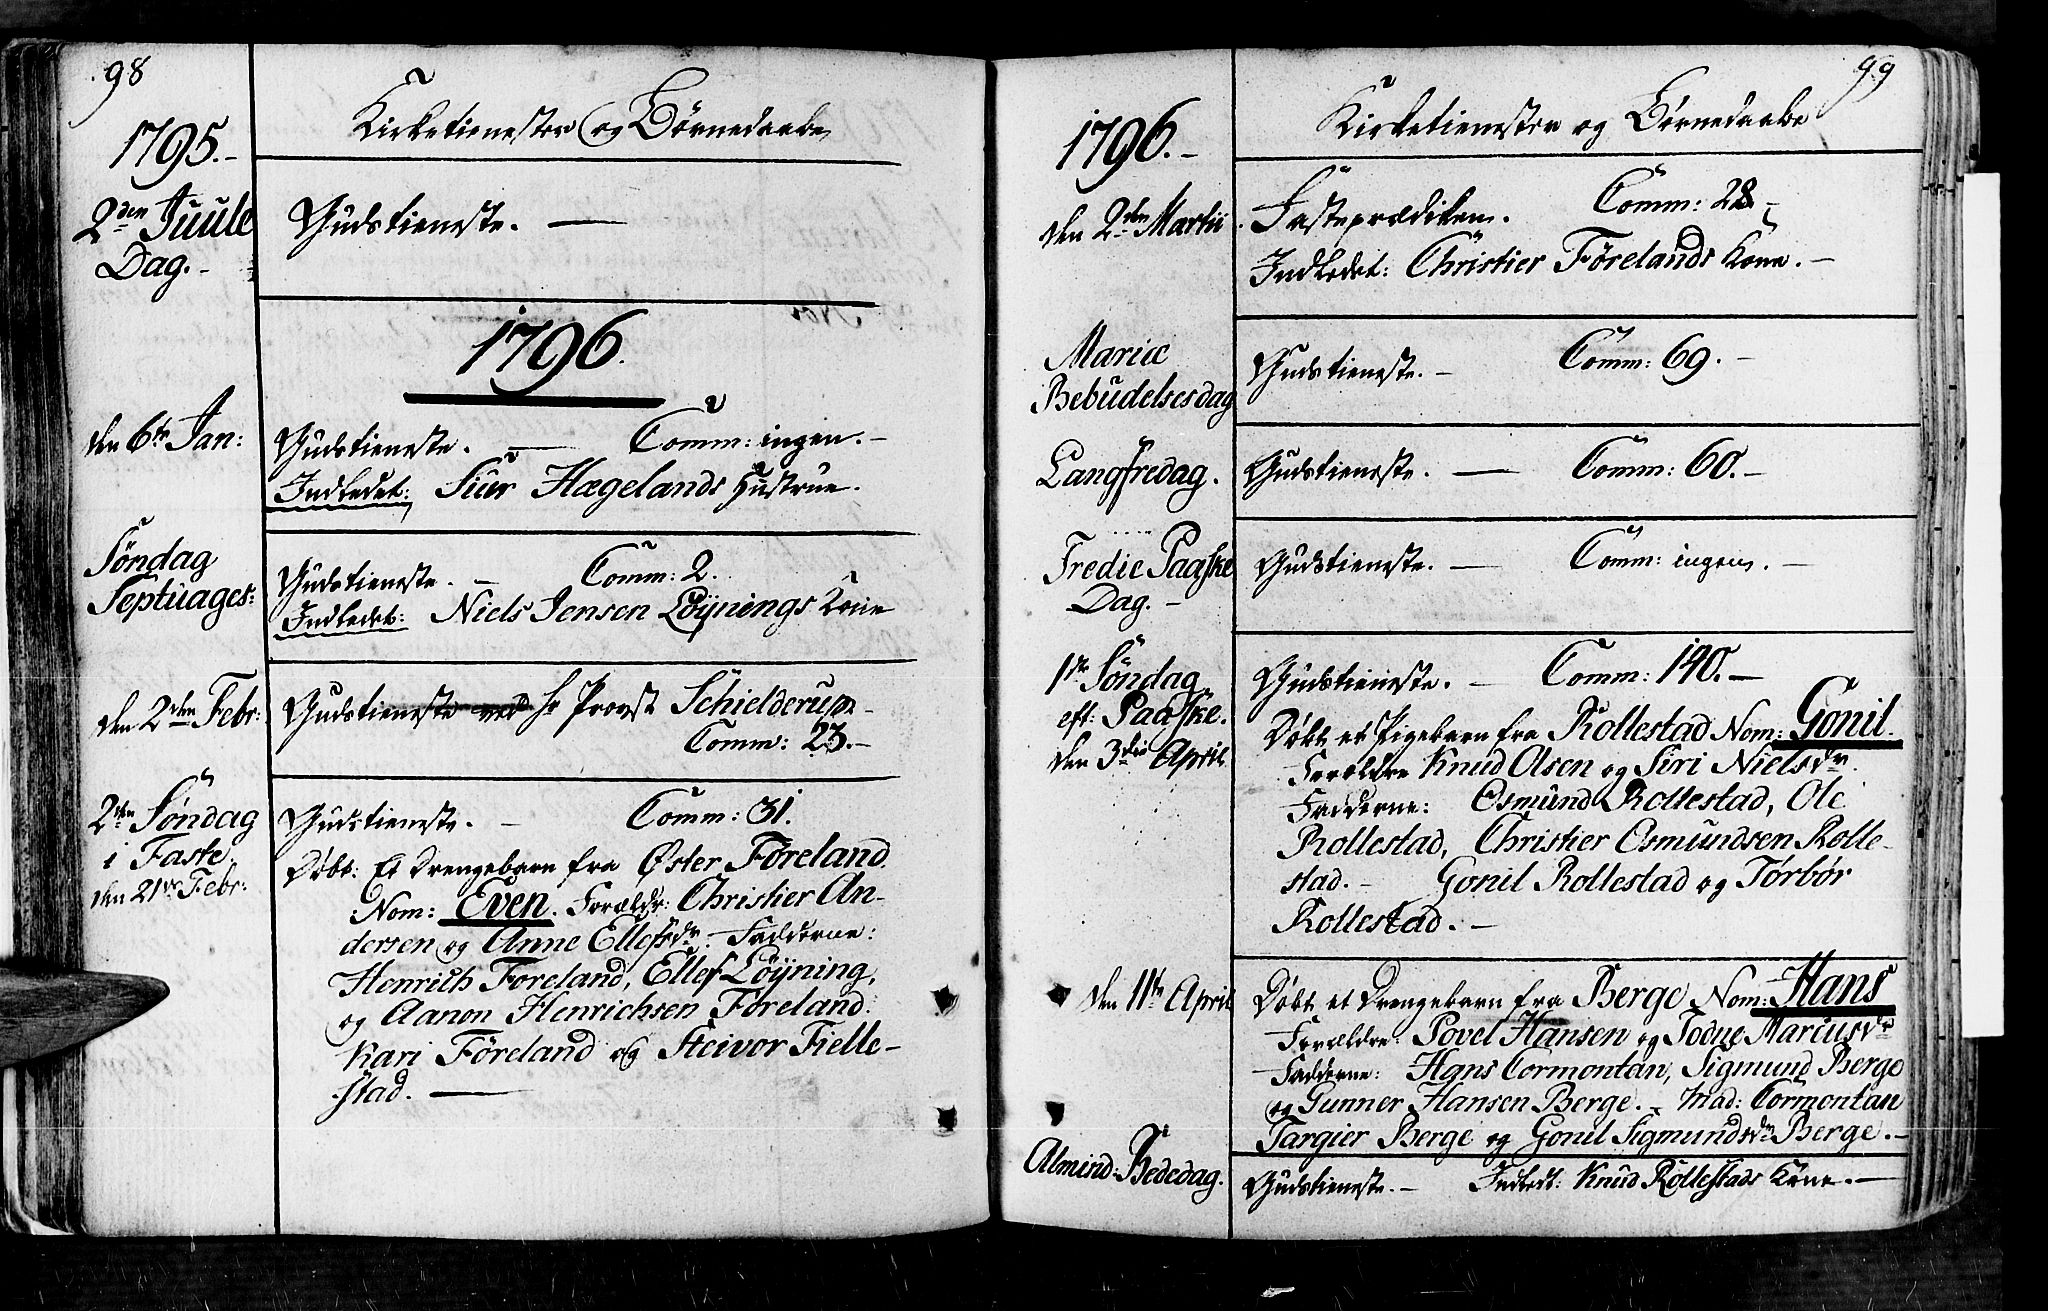 98
Kirketienester og Børnedaabe
1795.-
2den Juule
Dag.-
Gudstieneste. —
1796.
den 6te Jan:
Gudstieneste. — Comm: ingen.-
Indledet: Siur Hægelands Hustrue.
Søndag
Septuages:
Gudstieneste. - Comm: 2.
Indledet: Niels Jensen Løynings Kone
den 2den Febr:
Gudstieneste ved Hr Provst Schielderup.-
Comm: 23.-
2den Søndag
i Faste.
den 21de Febr:
Gudstieneste. - Comm: 31.
Døbt: Et Drengebarn fra Øster Føreland.
Nom: Even. Forældr: Christier An-
dersen og Anne Ellefsdr. Fadderne:
Henrich Foreland, Ellef Løyning,
og Aanon Henrichsen Føreland:
Kari Føreland og Steivor Fielle-
stad. —
99
Kirketienester og Børnedaabe
1796.-
den 2den Martii
Fasteprædiken. Comm: 28.-
Indledet: Christier Førelands Kone.-
Mariæ
Bebudelsesdag
Gudstieneste.- Comm: 69.-
Langfredag.
Gudstieneste. — Comm: 60.-
Tredie Paaske
Dag.-
Gudstieneste. — Comm: ingen. -
1ste Søndag
eft: Paaske.
den 3die April
Gudstieneste. - Comm: 140.-
Døbt et Pigebarn fra Rollestad Nom: Gonil.
Forældre Knud Olsen og Siri Nielsdr.
Fadderne: Osmund Rollestad, Ole
Rollestad, Christier Osmundsen Rolle-
stad.- Gonil Rollestad og Tørbør
Rollestad.-
den 11te April
Døbt et Drengebarn fra Berge Nom: Hans
Forældre Povel Hansen og Todne Marcusdr
Fadderne: Hans Cormontan, Sigmund Berge
og Gunner Hansen Berge.- Mad: Cormontan
Targier Berge og Gonil Sigmundsdr Berge.-
Almind: Bededag.
Gudstieneste.- Indledt: Knud Rollestads Kone.-